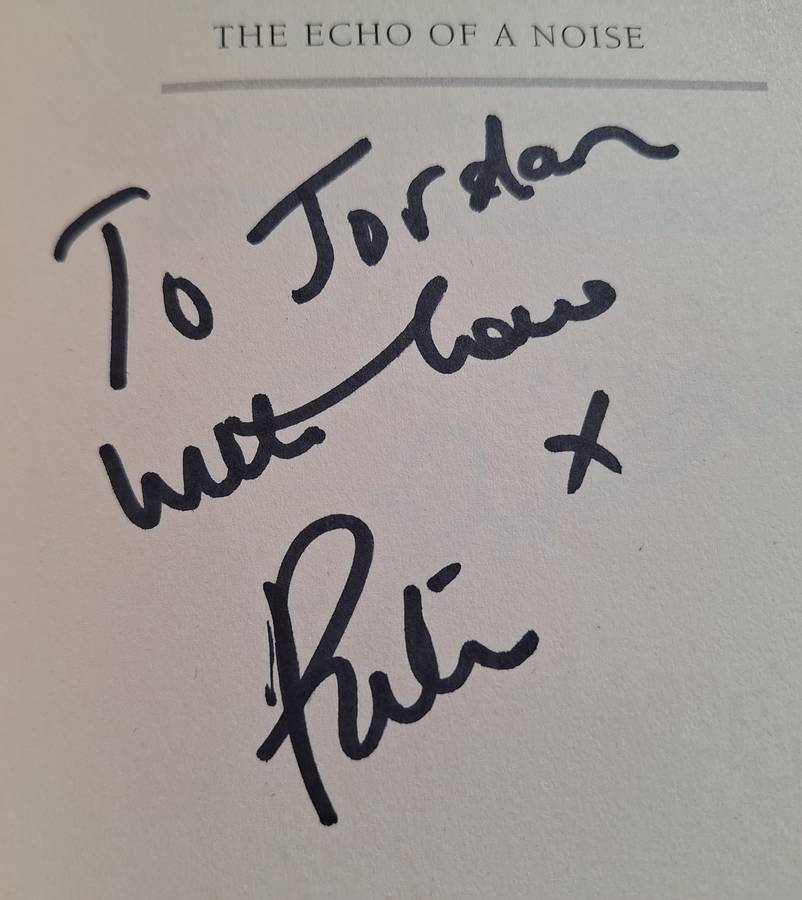 THE ECHO OF A NOISE
To Jordan
with love
x